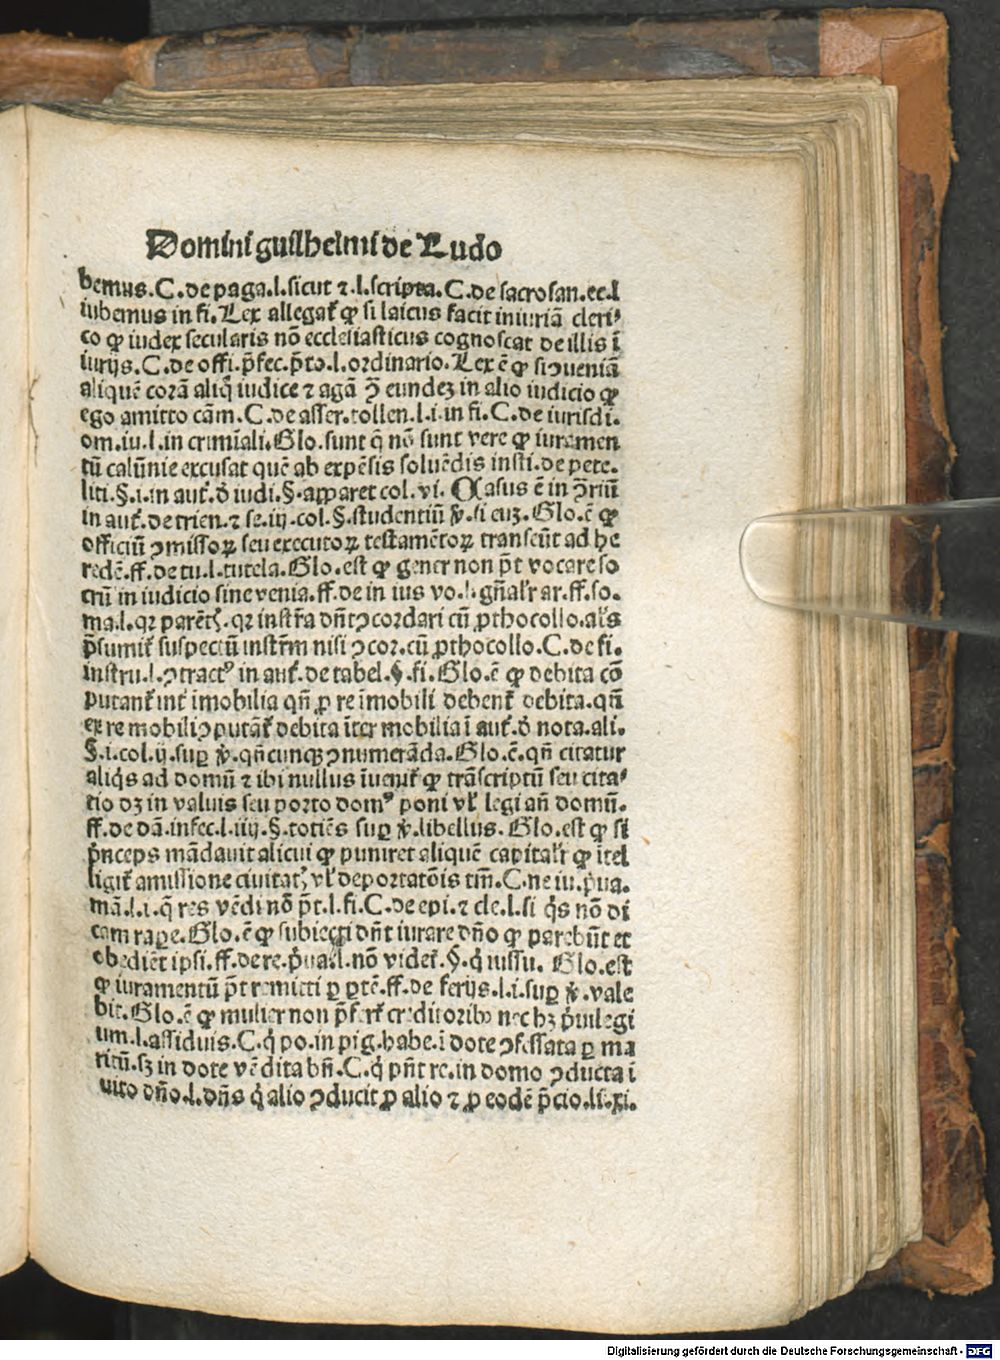 Domini guilhelmi de Ludo
bemus.C.de paga.l.sicut ⁊.l.scripta.C.de sacrosan.ec.l
iubemus in fi. Lex allegat᷑ ꝙ si laicus facit iniuriā cleri⸗
co ꝙ iudex secularis nō ecclesiasticus cognoscat de illis ī
iurijs.C.de offi.p̄fec.p̄to.l.ordinario. Lex ē ꝙ si ↄueniā
aliquē corā aliq̄ iudice ⁊ agā ↄ̄ eundeꝫ in alio iudicio ꝙ
ego amitto cām.C.de asser.tollen.l.i.in fi.C.de iurisdi.
om.iu.l.in crimīali. Glo.sunt q̄ nō sunt vere ꝙ iuramen
tū calūnie excusat quē ab expēsis soluēdis insti.de pete.
liti.§.i.in aut᷑.ð iudi.§.apparet col.vi. Casus ē in ↄ̄riū
in aut᷑.de trien.⁊ se.iij.col.§.studentiū ꝟ.si euꝫ. Glo.ē ꝙ
officiū ↄmissoꝝ seu executoꝝ testamētoꝝ transeūt ad he
redē.ff.de tu.l.tutela. Glo.est ꝙ gener non p̄t vocare so
crū in iudicio sine venia.ff.de in ius vo.l.gn̄alr̄ ar.ff.so.
ma.l.qꝛ parēt.qꝛ instr̄a dn̄t ↄcordari cū ꝓthocollo.als̄
p̄sumit᷑ suspectū instr̄m nisi ↄcor.cū ꝓthocollo.C.de fi.
instru.l.ↄtractꝰ in aut᷑.de tabel.§.fi. Glo.ē ꝙ debita cō
putant᷑ int᷑ imobilia qn̄ ꝓ re īmobili debent᷑ debita.qn̄
ex re mobili ↄputāt᷑ debita īter mobilia ī aut᷑.ð nota.ali.
§.i.col.ij.suꝑ ꝟ.qn̄cunqꝫ ↄnumerāda. Glo.ē.qn̄ citatur
aliq̇s ad domū ⁊ ibi nullus īuenit᷑ ꝙ trāscriptū seu cita⸗
tio dꝫ in valuis seu porto domꝰ poni vl̓ legi an̄ domū.
ff.de dā.infec.l.iiij.§.totiēs suꝑ ꝟ.libellus. Glo.est ꝙ si
p̄nceps mādauit alicui ꝙ puniret aliquē capitalr̄ ꝙ ītel
ligit᷑ amissione ciuitat vl̓ deportatōis tm̄.C.ne iu.ṗua.
mā.l.i.q̄ res vēdi nō p̄t.l.fi.C.de epi.⁊ cle.l.si q̇s nō di
cam raꝑe. Glo.ē ꝙ subiecti dn̄t iurare dn̄o ꝙ parebūt et
obediēt ipsi.ff.de re.ṗua.l.nō videt᷑.§.q̇ iussu. Glo.est
ꝙ iuramentū p̄t remitti ꝑ ꝑtē.ff.de ferijs.l.i.suꝑ ꝟ.vale
bit. Glo.ē ꝙ mulier non p̄fert᷑ creditoribꝰ nec hꝫ ṗuilegi
um.l.assiduis.C.q̇ po.in pig.habe.ī dote ↄfessata ꝑ ma
ritū.sꝫ in dote vēdita bn̄.C.q̇ pn̄t re.in domo ↄducta ī
uito dn̄o.l.dn̄s q̇ alio ↄducit ꝓ alio ⁊ ꝓ eodē p̄cio.li.xi.
Digitalisierung gefördert durch die Deutsche Forschungsgemeinschaft - DFG